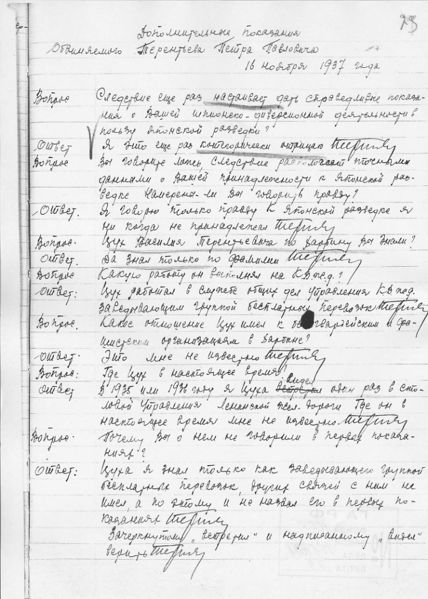 23
Дополнительные показания
Обвиняемого Терентьева Петра Павловича
16 ноября 1937 года
Вопрос Следствие еще раз настаивает дать справедливые показа-
ния о Вашей шпионско-диверсионной деятельности в
пользу японской разведки?
Ответ Я это еще раз категорически отрицаю
Вопрос Вы говорите ложь, следствие располагает точными
данными о Вашей принадлежности к Японской раз-
ведке. Намерены-ли Вы говорить правду?
Ответ. Я говорю только правду к Японской разведке я
ни когда не принадлежал
Вопрос: Цух Василия Терентьевича по Харбину Вы знали?
Ответ. Да знал только по фамилии
Вопрос Какую работу он выполнял на КВжд?
Ответ: Цух работал в службе общих дел Управления КВжд.
заведывающим группой бесплатных перевозок
Вопрос. Какое отношение Цух имел к белогвардейским и фа-
шистским организациям в Харбине?
Ответ: Это мне не известно
Вопрос: Где Цух в настоящее время?
видел
Ответ В 1935 или 1936 году я Цуха встретил один раз в сто-
ловой Управления Ленинской жел. дороги где он в
настоящее время мне не известно
Вопрос: Почему Вы о нем не говорили в первых показа-
ниях?
Ответ: Цуха я знал только как заведывающего группой
бесплатных перевозок, других связей с ним не
имел, а по этому и не назвал его в первых по-
казаниях
Зачеркнутому „встретил" и надписанному „видел"
верить